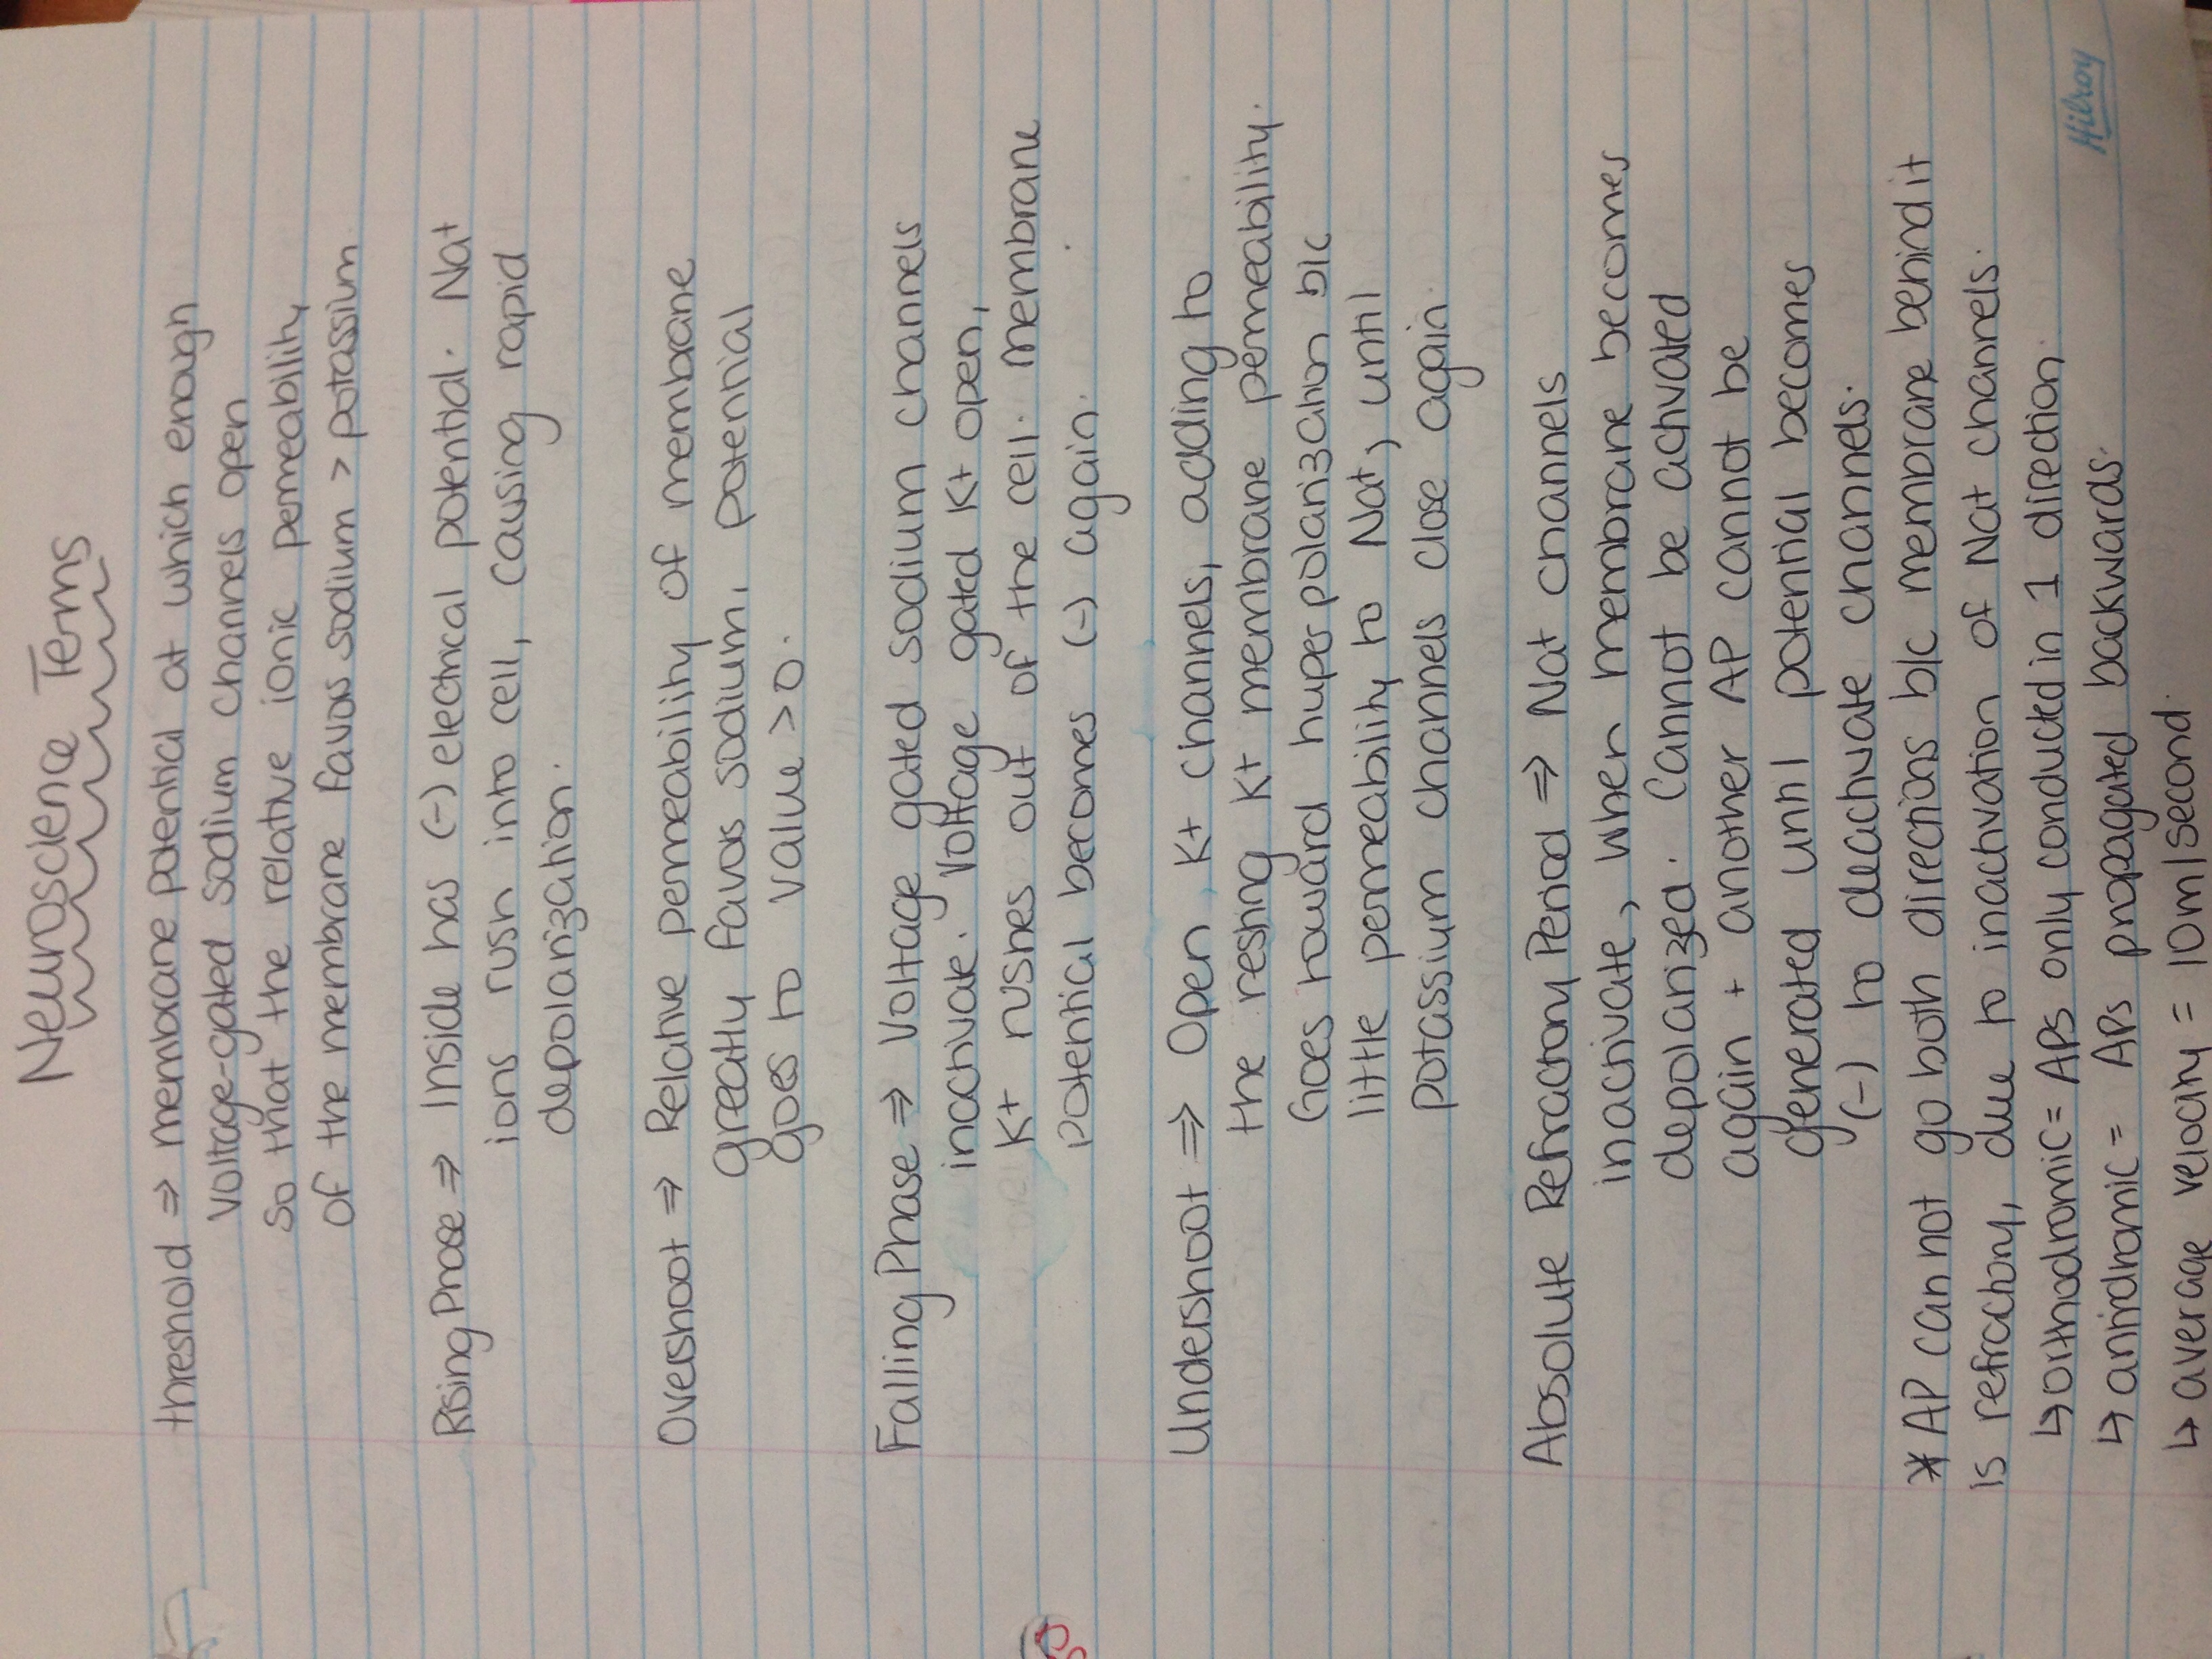 Neuroscience Terms
threshold ⇒ membrane potential at which enough
voltage-gated sodium channels open
so that the relative ionic permeability
of the membrane favors sodium > potassium.
Rising Phase ⇒ Inside has (-) electrical potential. Na+
ions rush into cell, causing rapid
depolarization.
Overshoot ⇒ Relative permeability of membrane
greatly favors sodium, potential
goes to value > 0.
Falling Phase ⇒ Voltage gated sodium channels
inactivate. Voltage gated K+ open,
K+ rushes out of the cell. Membrane
potential becomes (-) again.
Undershoot ⇒ Open K+ channels, adding to
the resting K+ membrane permeability.
Goes toward huperpolarization b/c
little permeability to Na+, until
potassium channels close again.
Absolute Refractory Period ⇒ Na+ channels
inactivate, when membrane becomes
depolarized. Cannot be activated
again + another AP cannot be
generated until potential becomes
(-) to deactivate channels.
* AP can not go both directions b/c membrane behind it
is refractory, due to inactivation of Na+ channels.
↳ orthodromic = APs only conducted in 1 direction.
↳ antidromic = APs propagated backwards.
↳ average velocity = 10m/second.
Hilroy